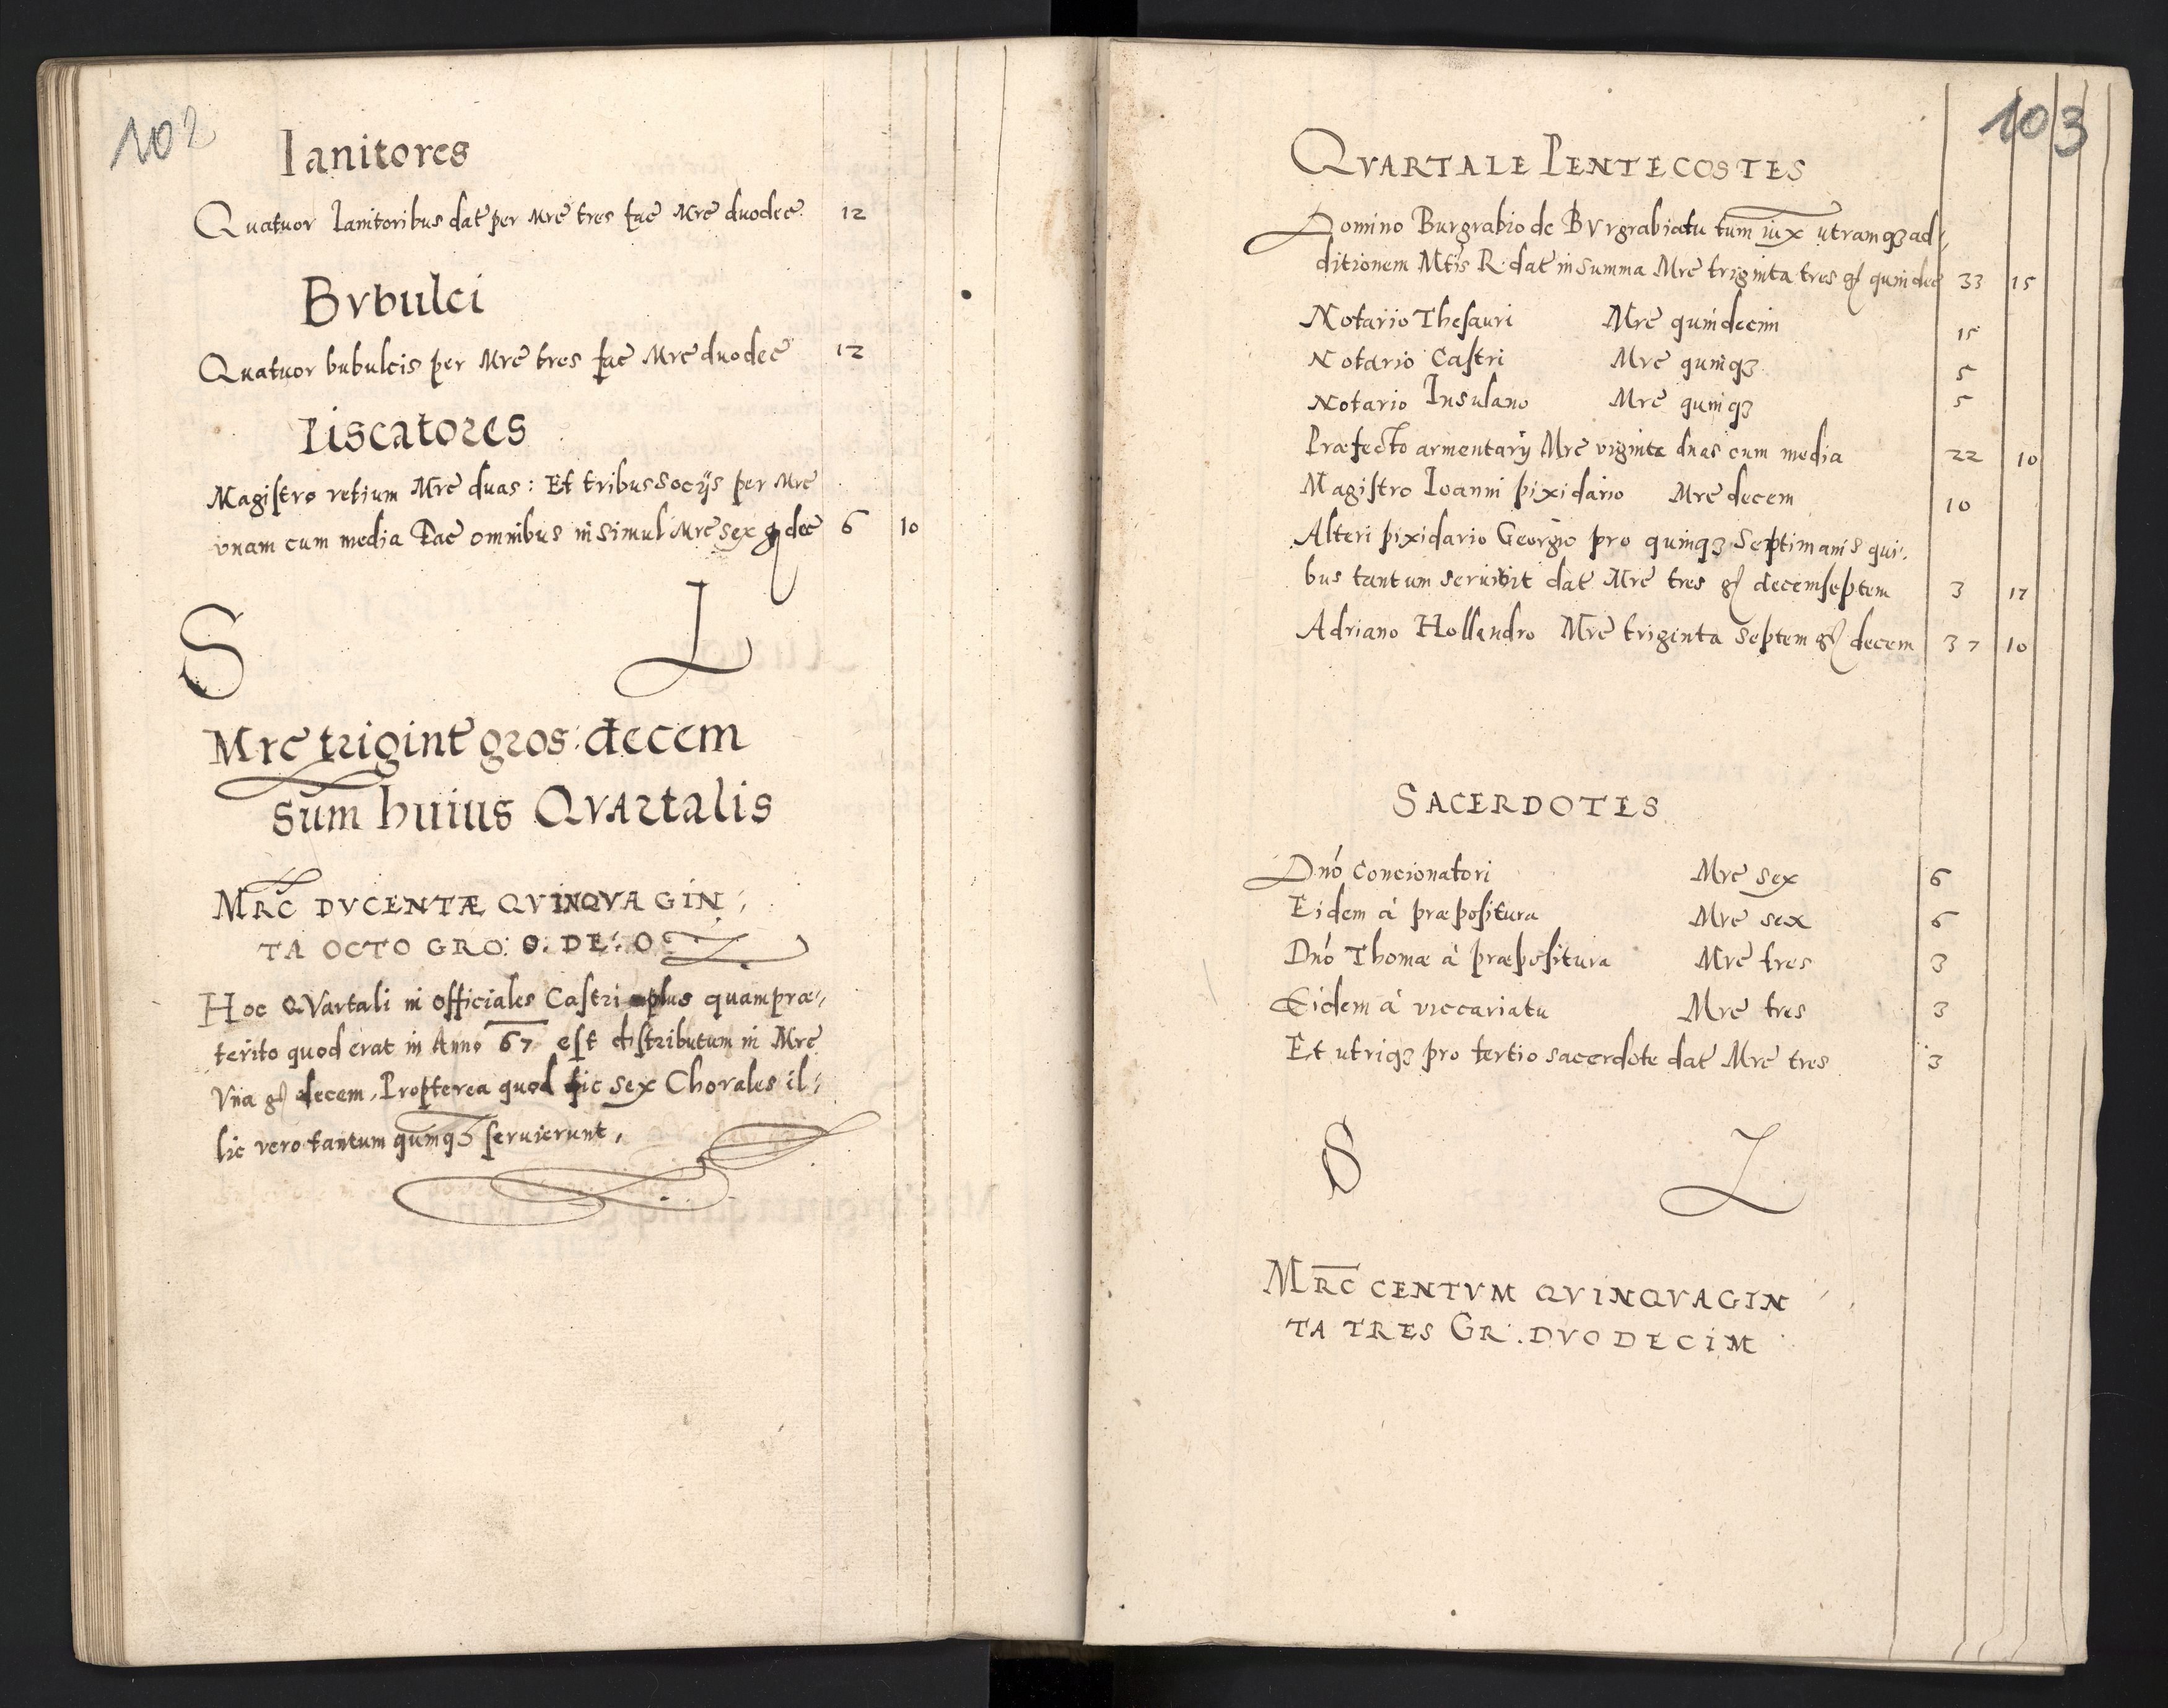 102
Ianitores
Quatuor Ianitoribus dat per Mrc tres fac Mrc duodec 12
Bvbulci
Quatuor bubulcis per Mrc tres fac Mrc duodec 12
Piscatores
Magistro retium Mrc duas : Et tribus Socijs per Mrc
vnam cum media Fac omnibus in simul Mrc sex g dec 6 10
S L
Mrc trigint gros: decem
Sum huius QVARtalis
MRC DVCENTÆ QVINQVAGIN
TA OCTO GRO:
Hoc QVartali in officiales Castri plus quam præ
terito quod erat in Anno 67 est distributum in Mrc
Vna gr decem, Propterea quod hic sex Chorales il
lic vero tantum quinqȝ seruierunt,
103
QVARTALE PENTECOSTES
Domino Burgrabio de BVrgrabiatu tum utramqȝ ad
ditionem Mtis R. dat in summa Mrc triginta tres gr quindec 33 15
Notario Thesauri Mrc quindecim 15
Notario Castri Mrc quinqȝ 5
Notario Insulano Mrc quinqȝ 5
Præfecto armentarij Mrc viginta duas cum media 22 10
Magistro Ioanni pixidario Mrc decem 10
Alteri pixidario Georgio pro quinqȝ Septimanis qui
bus tantum seruivit dat Mrc tres gr decemseptem 3 17
Adriano Hollandro Mrc triginta septem gr decem 37 10
SACERDOTES
Dnó Concionatori Mrc sex 6
Eidem á præpositura Mrc sex 6
Dnó Thomæ à præpositura Mrc tres 3
Eidem á viccariatu Mrc tres 3
Et utriqȝ pro tertio sacerdote dat Mrc tres 3
S L
MRC CENTVM QVINQVAGIN
TA TRES GR. DVODECIM